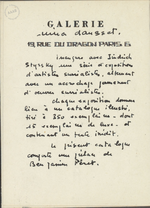 GALERIE
nina dausset
19, RUE DU DRAGON PARIS 6
inaugure avec Jindrich
Styrsky une série d'exposition
d'artistes surréalistes, alternant
avec un accrochage permanent
d'œuvres surréalistes.
chaque exposition donnera
lieu à un catalogue illustré,
tiré à 350 exemplaires - dont
15 exemplaires de luxe - et
contenant un texte inédit.
le présent catalogue
comporte une préface de
Benjamin Péret.